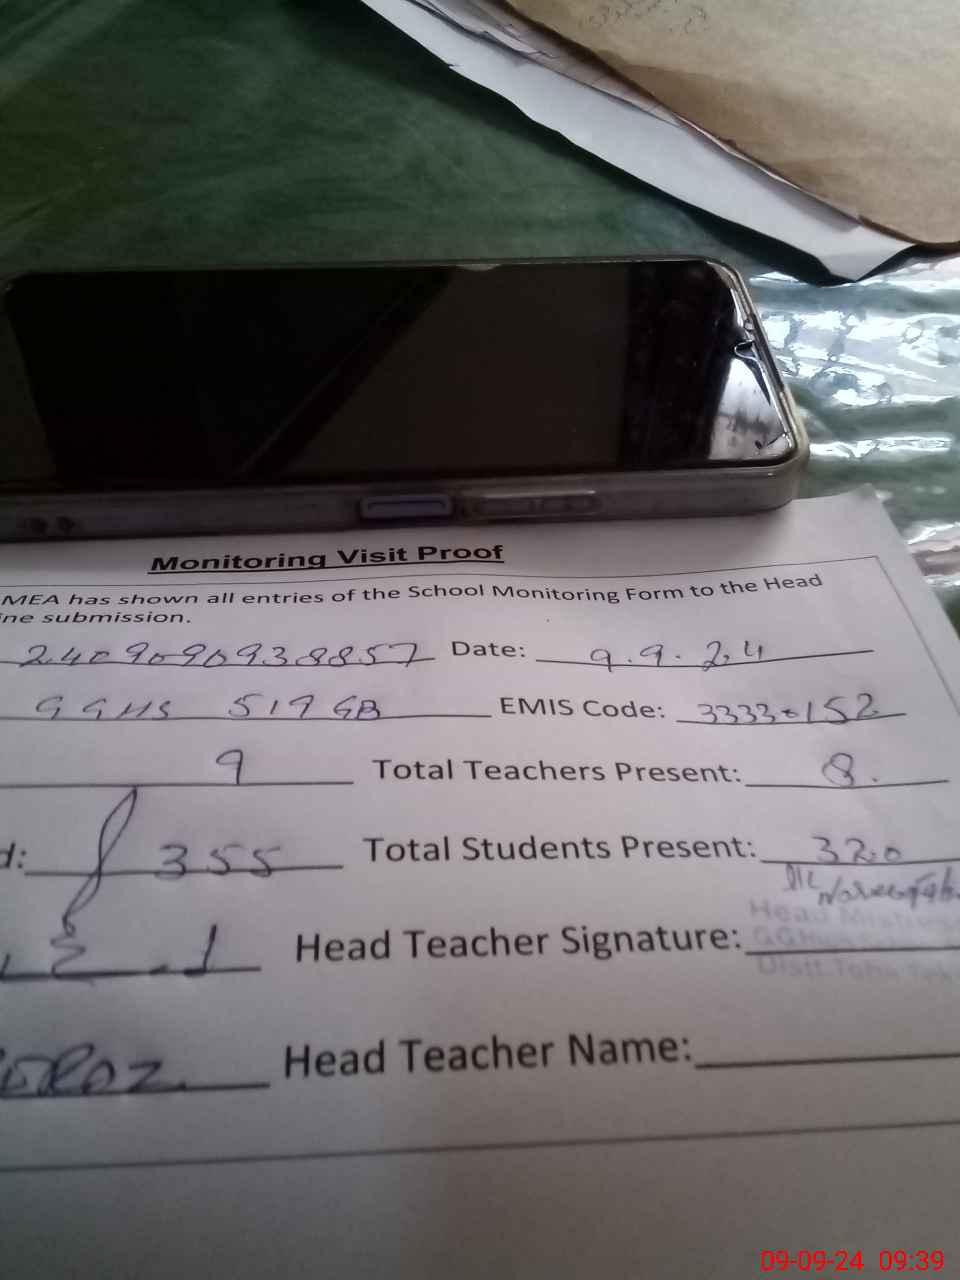 Monitoring Visit Proof
MEA has shown all entries of the School Monitoring Form to the Head
ine submission.
2409090938857 Date: 9.9.24
GGHS 519 GB EMIS Code: 33330152
9 Total Teachers Present: 8.
d: 355 Total Students Present: 320
Head Teacher Signature:
Head Teacher Name:
09-09-24 09:39